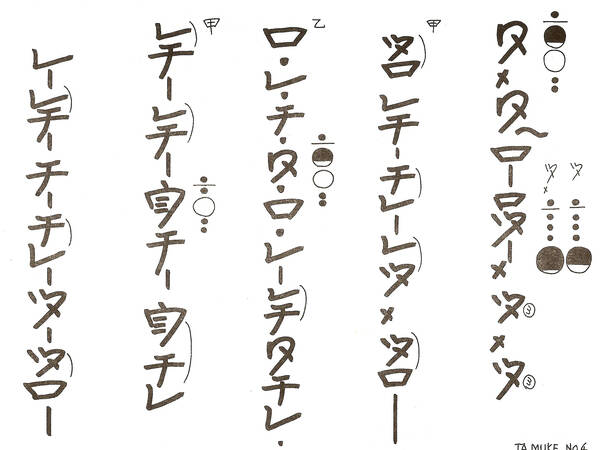 タメタ〜ローロツーメツメツ
甲
ツロレチーチレーレツメツロー
乙
ロ・レ・チ・タ・ロ・レーレチタチレ・
甲
レチーレチーチーチレ
レーレチーチーチレーツーツロー
TAMUKE No